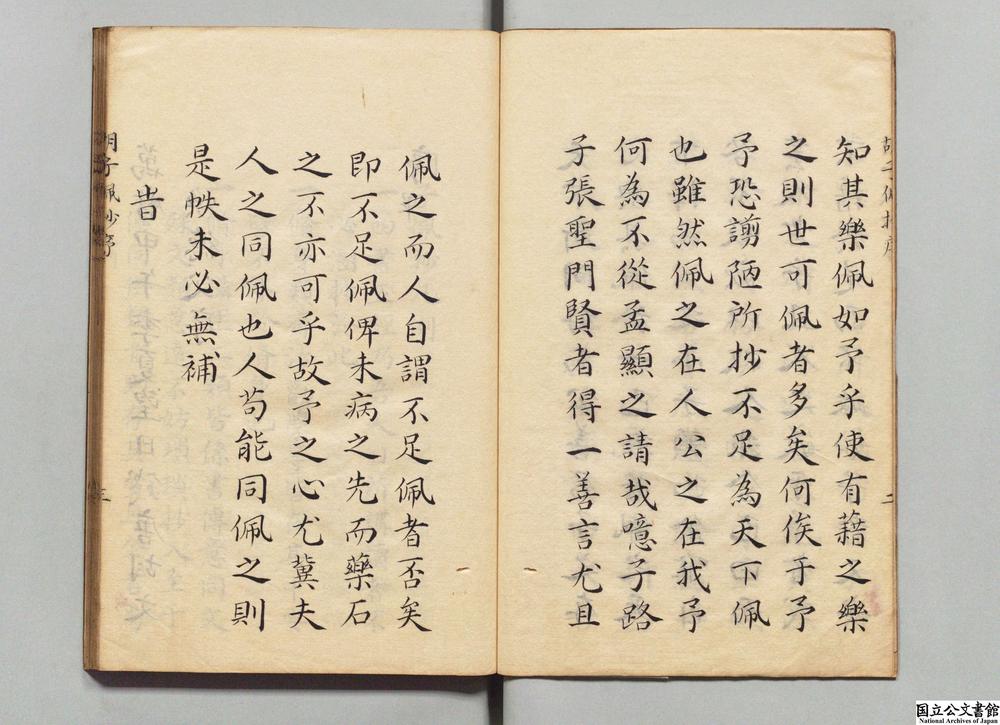 知其樂佩如予乎使有藉之樂
之則世可佩者多矣何俟于予
予恐謭陋所抄不足為天下佩
也雖然佩之在人公之在我予
何為不從孟顯之請哉噫子路
子張聖門賢者得一善言尤且
二
佩之而人自謂不足佩者否矣
即不足佩俾未病之先而藥石
之不亦可乎故予之心尤冀夫
人之同佩也人苟能同佩之則
是帙未必無補
旹
胡子佩抄序
三
国立公文書館
National Archives of Japan